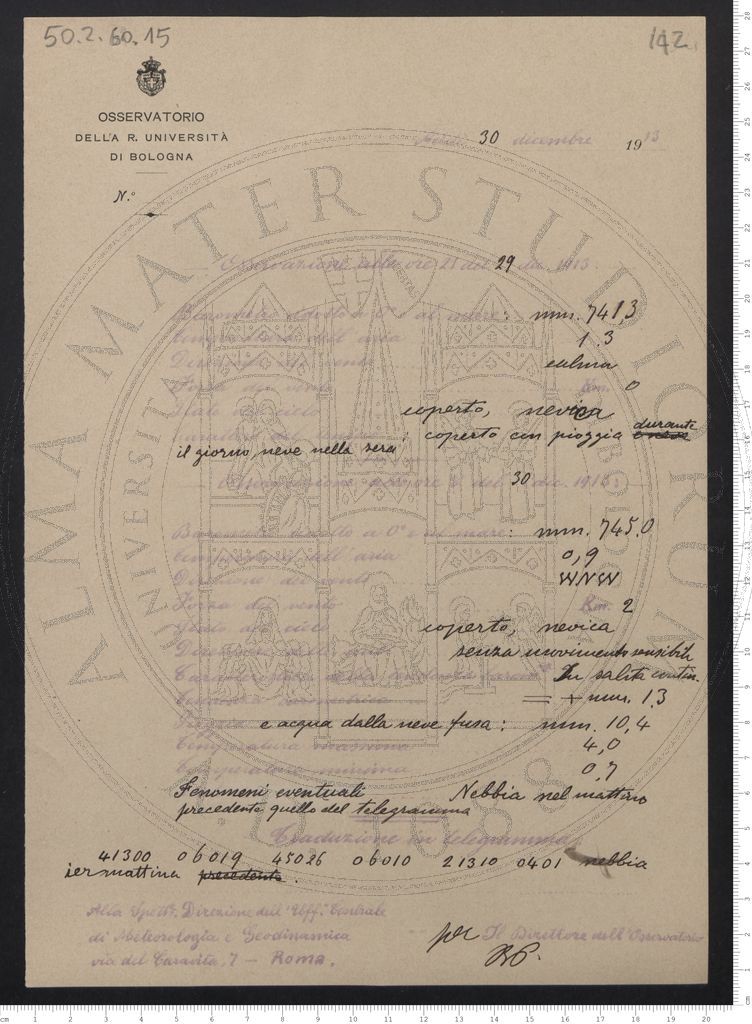 50.2.60.15
142.
OSSERVATORIO
DELLA R. UNIVERSITÀ
DI BOLOGNA
N.°
30 dicembre 1913
Osservazione alle ore 21 del 29 dic. 1913.
Barometro ridotto a 0° e al mare: mm. 741 3
Temperatura dell'aria 1.3
Direzione del vento calma
Forza del vento Km. 0
Stato del cielo coperto, nevica
: coperto con pioggia durante
il giorno, neve nella sera
Osservazione alle ore 8 del 30 dic. 1913:
Barometro ridotto a 0° e al mare: mm. 745.0
Temperatura dell'aria 0,9
Direzione del vento WNW
Forza del vento Km. 2
Stato del cielo coperto, nevica
Direzione delle nubi senza movimento sensibile
Caratteristica della tendenza barom. In salita contin.
= + mm. 1.3
Pioggia e acqua dalla neve fusa: mm. 10,4
Temperatura massima 4,0
Temperatura minima 0,7
Fenomeni eventuali Nebbia nel mattino
precedente quello del telegramma
Traduzione in telegramma
41300 06019 45026 06010 21310 0401 nebbia
iermattina precedente.
Alla Spett. Direzione dell'Uff. Centrale
di Meteorologia e Geodinamica
via del Caravita, 7 – Roma.
per Il Direttore dell'Osservatorio
ALMA MATER STUDIORUM